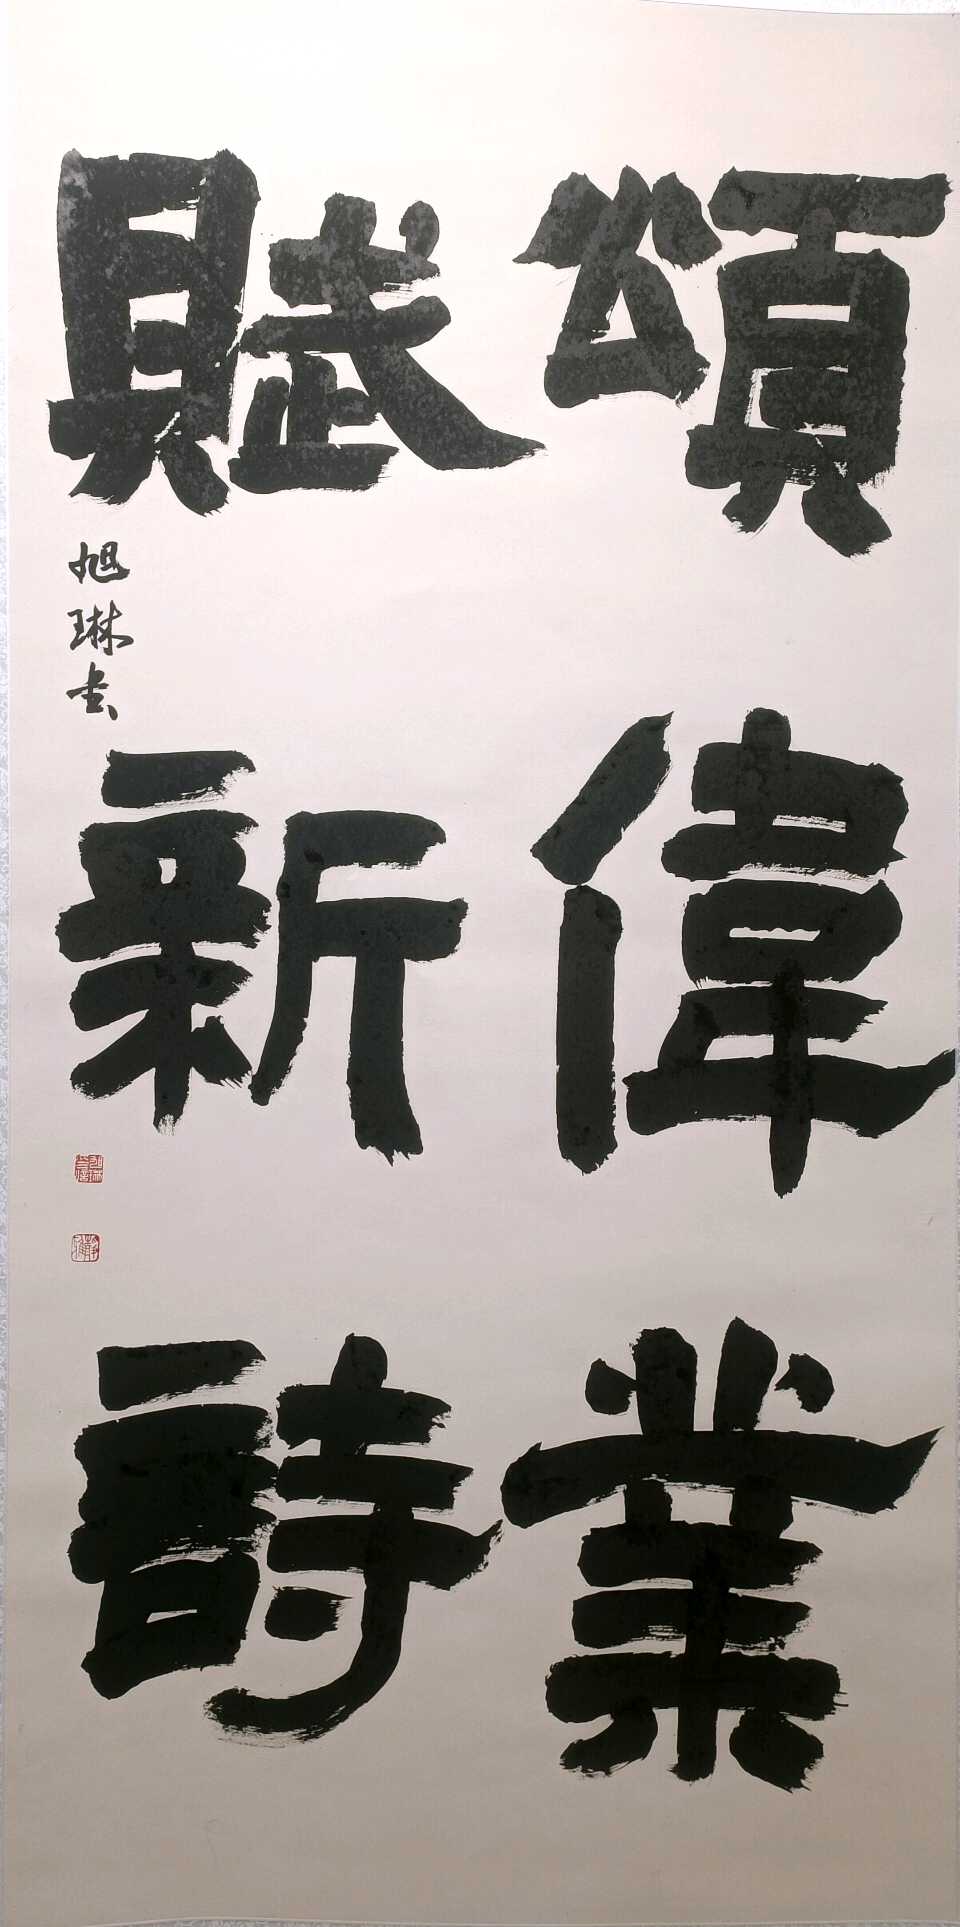 頌偉業
賦新詩
旭琳书